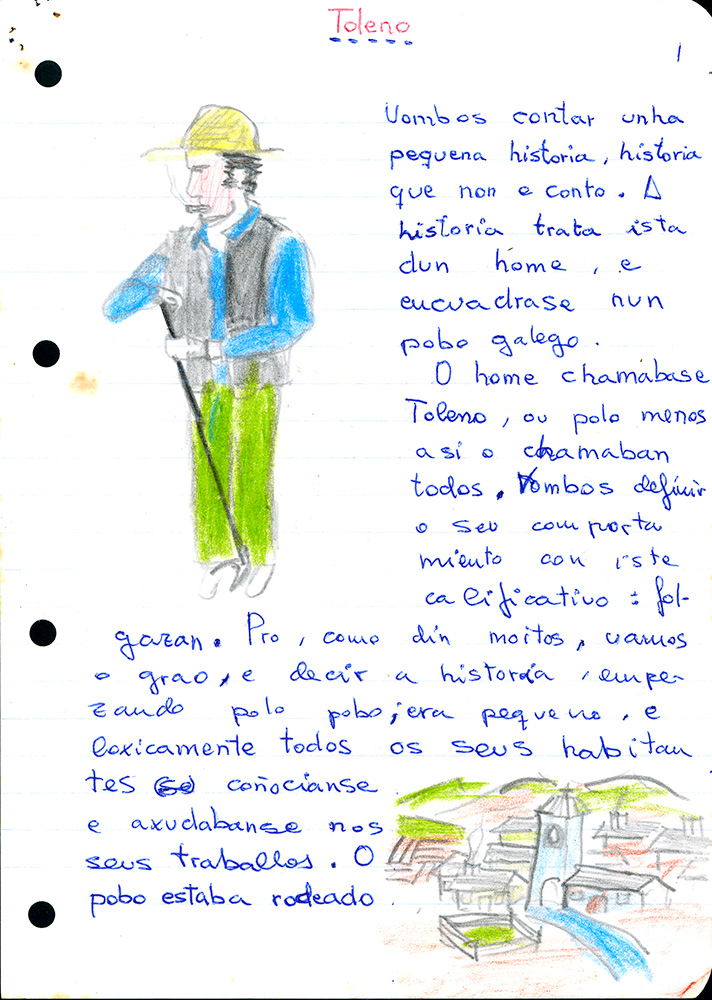 Toleno
1
Vombos contar unha
pequena historia, historia
que non e conto. A
historia trata ista
dun home, e
encuadrase nun
pobo galego.
O home chamábase
Toleno, ou polo menos
asi o chamaban
todos. Vombos definir
o seu comporta
miento con iste
calificativo: fol-
gazan. Pro, como din moitos, vamos
o grao, e decir a historia, empe-
zando polo pobo; era pequeno, e
loxicamente todos os seus habitan
tes coñocianse
e axudabanse nos
seus traballos. O
pobo estaba rodeado